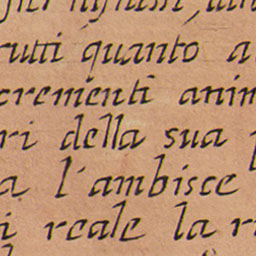 rutti quanto a
crementi anim
ri della sua
a l'ambisce
i reale la ri